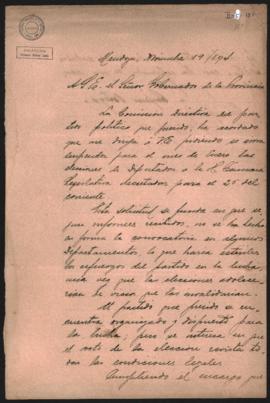 Mendoza, Diciembre 19/894
A S. E. el Señor Gobernador de la Provincia
La Comision Directiva del par
tido politico que presido, ha acordado
que me dirija á V.E. pidiendo se sirva
suspender para el mes de Enero las
elecciones de Diputados a la H. Camara
Legislativa decretadas para el 25 del
corriente.
Esta solicitud se funda en que se
gun informes recibidos, no se ha hecho
en forma la convocatoria en algunos
Departamentos, lo que haria estériles
los esfuerzos del partido en la lucha,
una vez que las elecciones adolece
rian de vicios que las invalidarian.
El partido que presido se en
cuentra organizado y dispuesto para
la lucha; pero se interesa en que
el acto de la eleccion revista to
das las condiciones legales.
Cumpliendo el encargo que